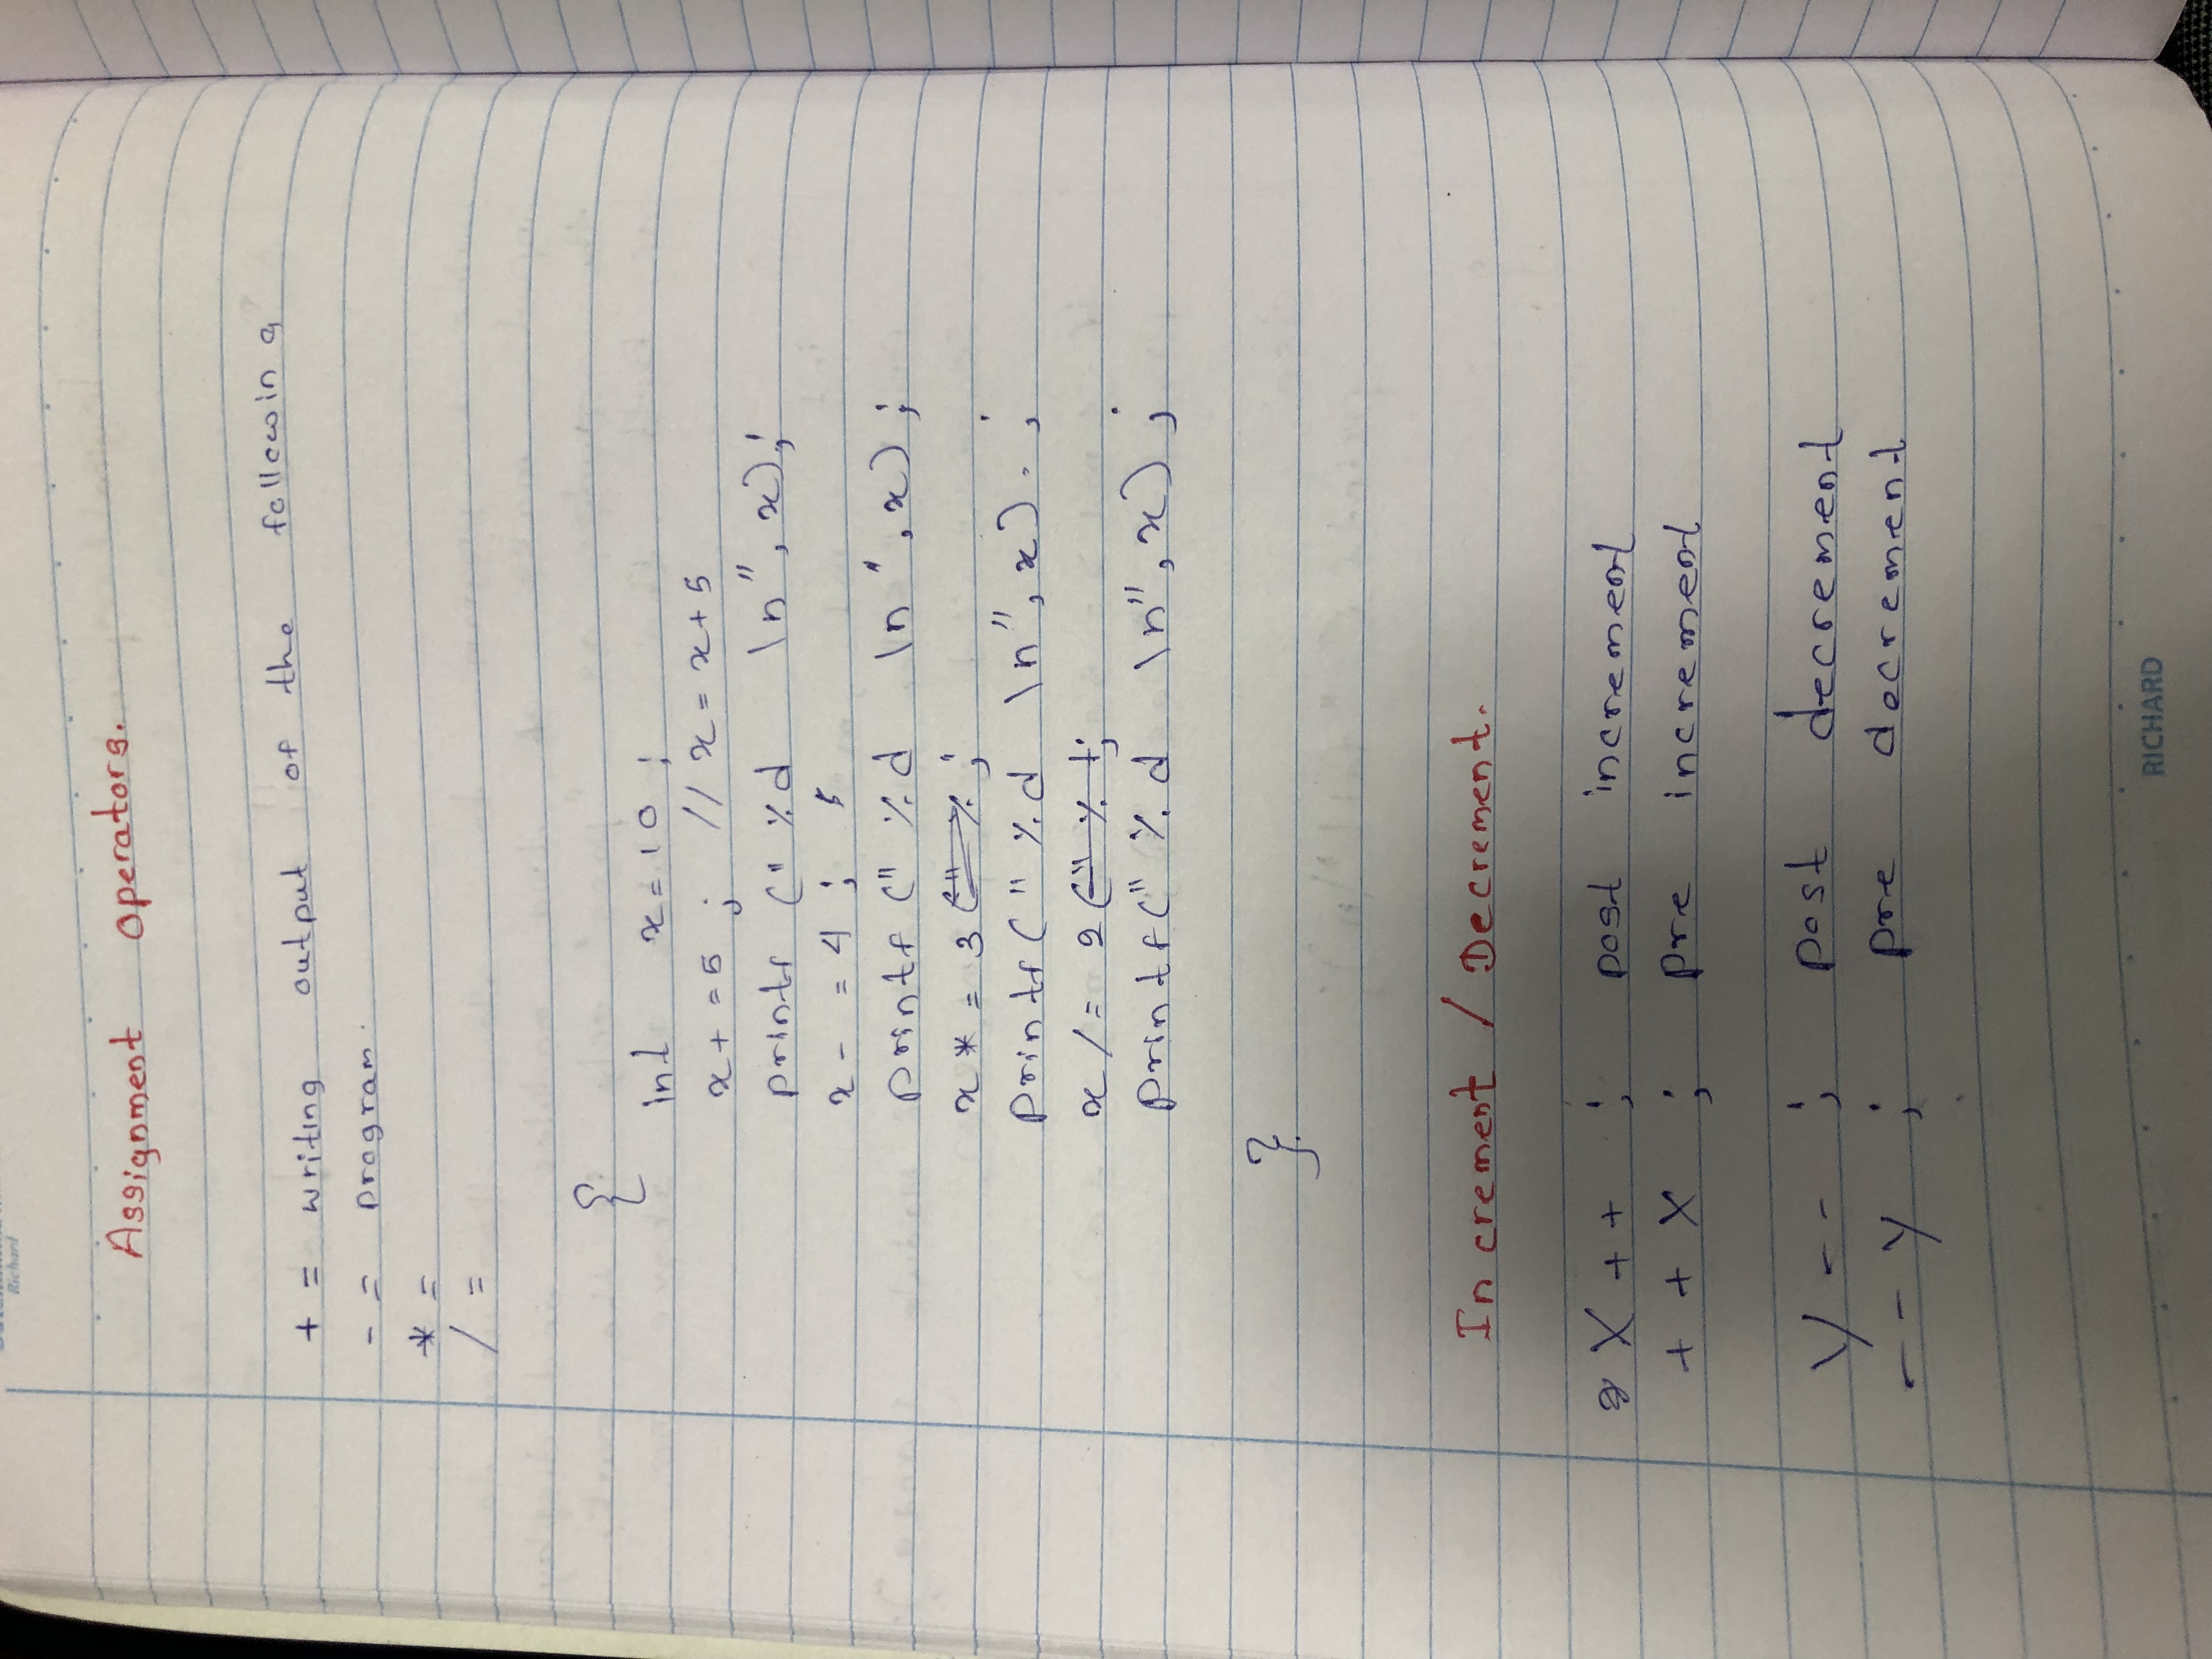 Richard
Assignment operators.
+ = writing output of the following
- = program.
* =
/ =
{
int x = 10 ;
x + = 5 ; // x = x + 5
printf (" %d \n", x);
x - = 4 ;
printf (" %d \n ", x) ;
x * = 3 ;
printf (" %d \n", x) . ;
x / = 2 ;
printf (" %d \n", x) ;
}.
Increment / Decrement.
X + + ; post increment
+ + X ; pre increment
y - - ; post decrement
- - y ; pre decrement
RICHARD